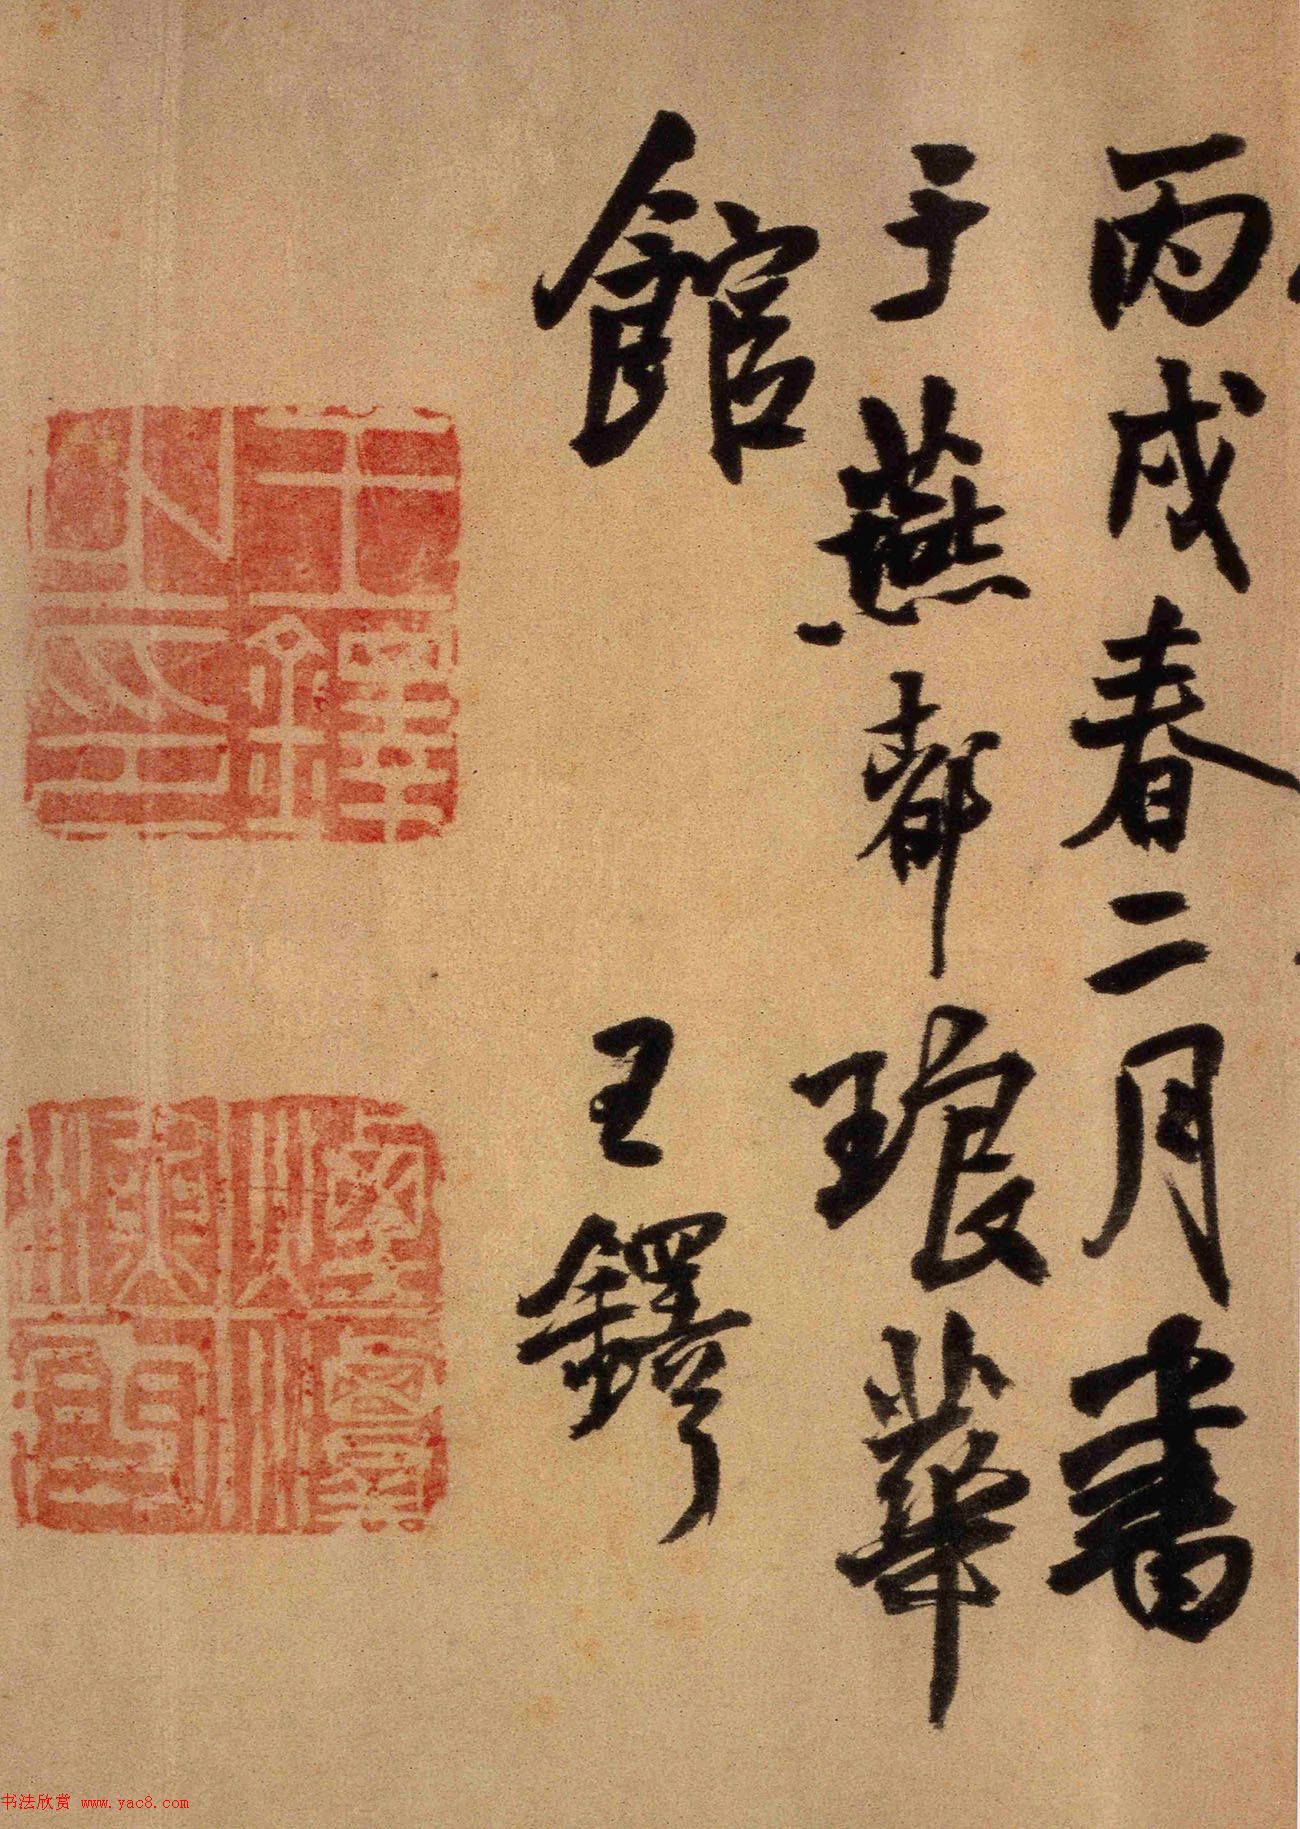 丙戌春二月書
于燕都琅華
館
王鐸
王鐸之印
書法欣赏 www.yac8.com